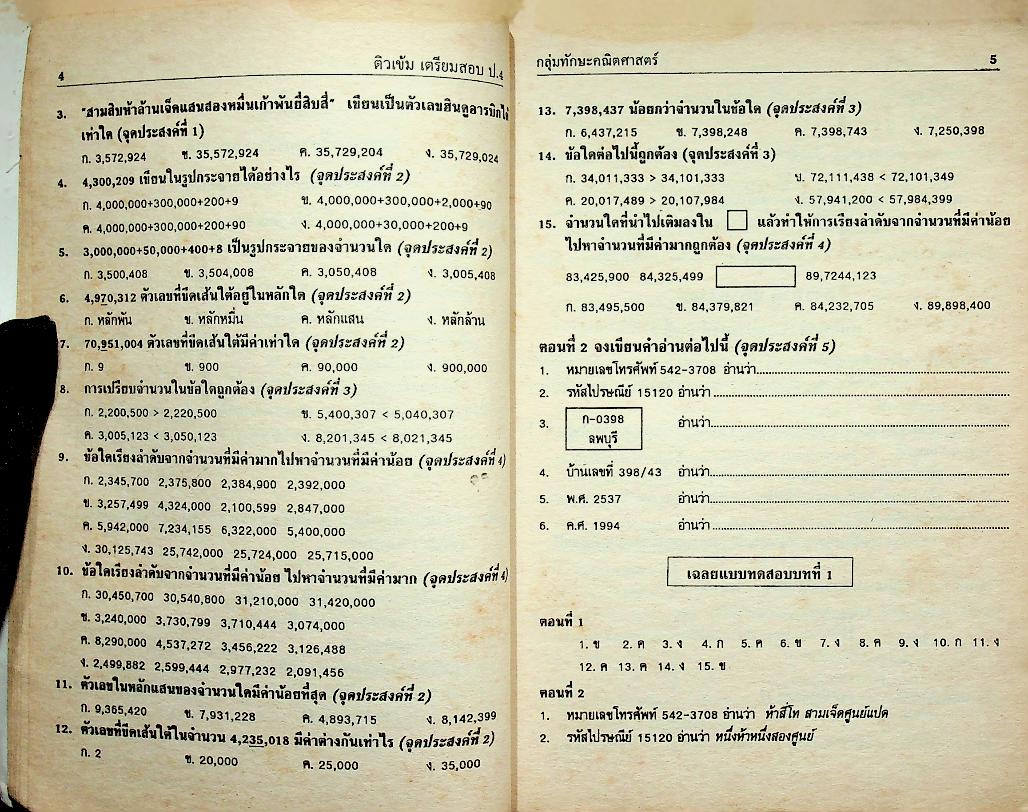 4
ติวเข้ม เตรียมสอบ ป.4
3. "สามสิบห้าล้านเจ็ดแสนสองหมื่นเก้าพันยี่สิบสี่" เขียนเป็นตัวเลขฮินดูอารบิกได้
เท่าใด (จุดประสงค์ที่ 1)
ก. 3,572,924 ข. 35,572,924 ค. 35,729,204 ง. 35,729,024
4. 4,300,209 เขียนในรูปกระจายได้อย่างไร (จุดประสงค์ที่ 2)
ก. 4,000,000+300,000+200+9 ข. 4,000,000+300,000+2,000+90
ค. 4,000,000+300,000+200+90 ง. 4,000,000+30,000+200+9
5. 3,000,000+50,000+400+8 เป็นรูปกระจายของจำนวนใด (จุดประสงค์ที่ 2)
ก. 3,500,408 ข. 3,504,008 ค. 3,050,408 ง. 3,005,408
6. 4,970,312 ตัวเลขที่ขีดเส้นใต้อยู่ในหลักใด (จุดประสงค์ที่ 2)
ก. หลักพัน ข. หลักหมื่น ค. หลักแสน ง. หลักล้าน
7. 70,951,004 ตัวเลขที่ขีดเส้นใต้มีค่าเท่าใด (จุดประสงค์ที่ 2)
ก. 9 ข. 900 ค. 90,000 ง. 900,000
8. การเปรียบจำนวนในข้อใดถูกต้อง (จุดประสงค์ที่ 3)
ก. 2,200,500 > 2,220,500 ข. 5,400,307 < 5,040,307
ค. 3,005,123 < 3,050,123 ง. 8,201,345 < 8,021,345
9. ข้อใดเรียงลำดับจากจำนวนที่มีค่ามากไปหาจำนวนที่มีค่าน้อย (จุดประสงค์ที่ 4)
ก. 2,345,700 2,375,800 2,384,900 2,392,000
ข. 3,257,499 4,324,000 2,100,599 2,847,000
ค. 5,942,000 7,234,155 6,322,000 5,400,000
ง. 30,125,743 25,742,000 25,724,000 25,715,000
10. ข้อใดเรียงลำดับจากจำนวนที่มีค่าน้อย ไปหาจำนวนที่มีค่ามาก (จุดประสงค์ที่ 4)
ก. 30,450,700 30,540,800 31,210,000 31,420,000
ข. 3,240,000 3,730,799 3,710,444 3,074,000
ค. 8,290,000 4,537,272 3,456,222 3,126,488
ง. 2,499,882 2,599,444 2,977,232 2,091,456
11. ตัวเลขในหลักแสนของจำนวนใดมีค่าน้อยที่สุด (จุดประสงค์ที่ 2)
ก. 9,365,420 ข. 7,931,228 ค. 4,893,715 ง. 8,142,399
12. ตัวเลขที่ขีดเส้นใต้ในจำนวน 4,235,018 มีค่าต่างกันเท่าไร (จุดประสงค์ที่ 2)
ก. 2 ข. 20,000 ค. 25,000 ง. 35,000
กลุ่มทักษะคณิตศาสตร์
5
13. 7,398,437 น้อยกว่าจำนวนในข้อใด (จุดประสงค์ที่ 3)
ก. 6,437,215 ข. 7,398,248 ค. 7,398,743 ง. 7,250,398
14. ข้อใดต่อไปนี้ถูกต้อง (จุดประสงค์ที่ 3)
ก. 34,011,333 > 34,101,333 ข. 72,111,438 < 72,101,349
ค. 20,017,489 > 20,107,984 ง. 57,941,200 < 57,984,399
15. จำนวนใดที่นำไปเติมลงใน □ แล้วทำให้การเรียงลำดับจากจำนวนที่มีค่าน้อย
ไปหาจำนวนที่มีค่ามากถูกต้อง (จุดประสงค์ที่ 4)
83,425,900 84,325,499 89,7244,123
ก. 83,495,500 ข. 84,379,821 ค. 84,232,705 ง. 89,898,400
ตอนที่ 2 จงเขียนคำอ่านต่อไปนี้ (จุดประสงค์ที่ 5)
1. หมายเลขโทรศัพท์ 542-3708 อ่านว่า
2. รหัสไปรษณีย์ 15120 อ่านว่า
3. ก-0398 อ่านว่า
ลพบุรี
4. บ้านเลขที่ 398/43 อ่านว่า
5. พ.ศ. 2537 อ่านว่า
6. ค.ศ. 1994 อ่านว่า
เฉลยแบบทดสอบบทที่ 1
ตอนที่ 1
1. ข 2. ค 3. ง 4. ก 5. ค 6. ข 7. ง 8. ค 9. ง 10. ก 11. ง
12. ค 13. ค 14. ง 15. ข
ตอนที่ 2
1. หมายเลขโทรศัพท์ 542-3708 อ่านว่า ห้าสี่โท สามเจ็ดศูนย์แปด
2. รหัสไปรษณีย์ 15120 อ่านว่า หนึ่งห้าหนึ่งสองศูนย์